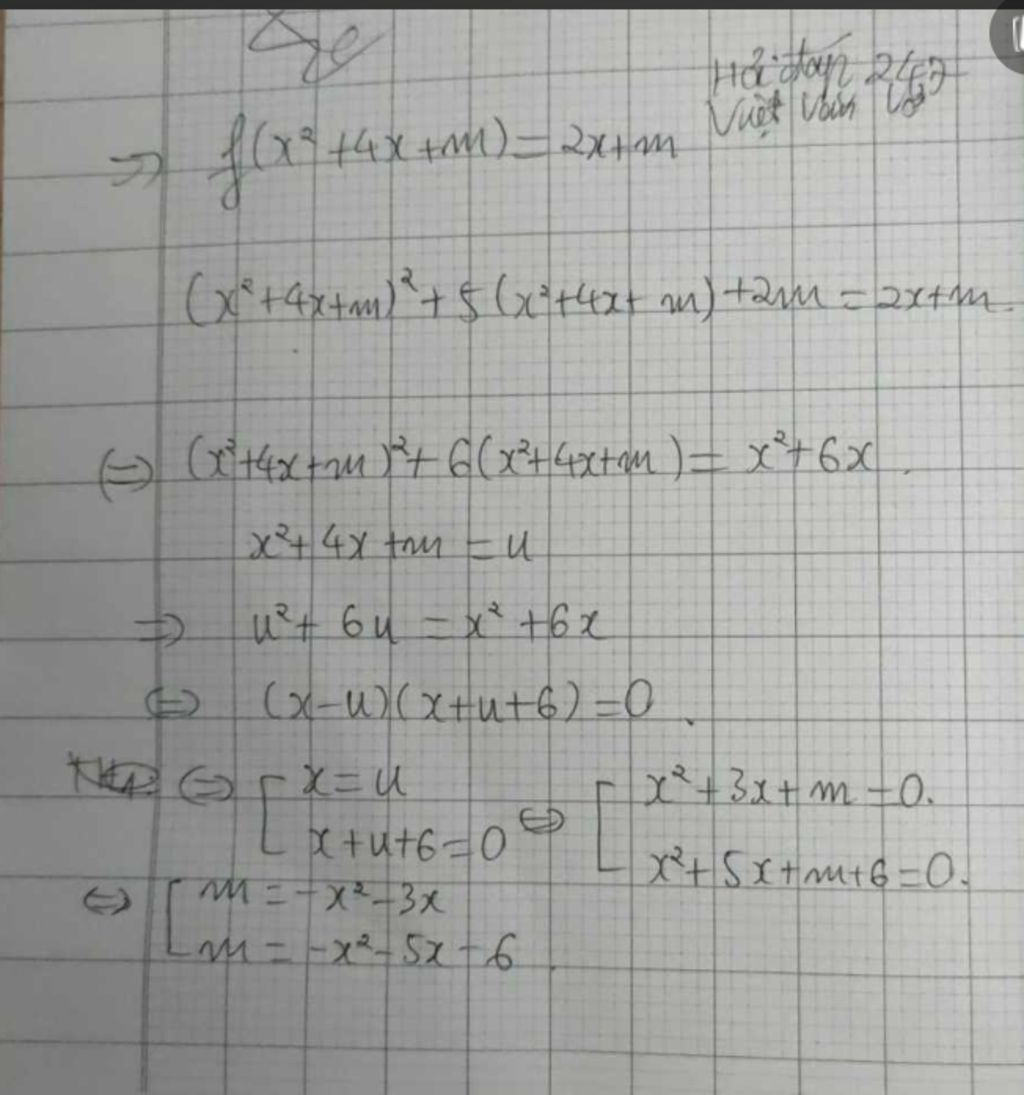 Hỏi đáp 247
Việt Vấn
⇒ f(x²+4x+m) = 2x+m
(x²+4x+m)² + 5(x²+4x+m) + 2m = 2x+m.
(=) (x²+4x+m)² + 6(x²+4x+m) = x²+6x.
x²+4x+m = u
⇒ u²+6u = x²+6x
(=) (x-u)(x+u+6) = 0.
(=) [ x = u (=) [ x²+3x+m = 0.
x+u+6 = 0 x²+5x+m+6 = 0.
(=) [ m = -x²-3x
m = -x²-5x-6